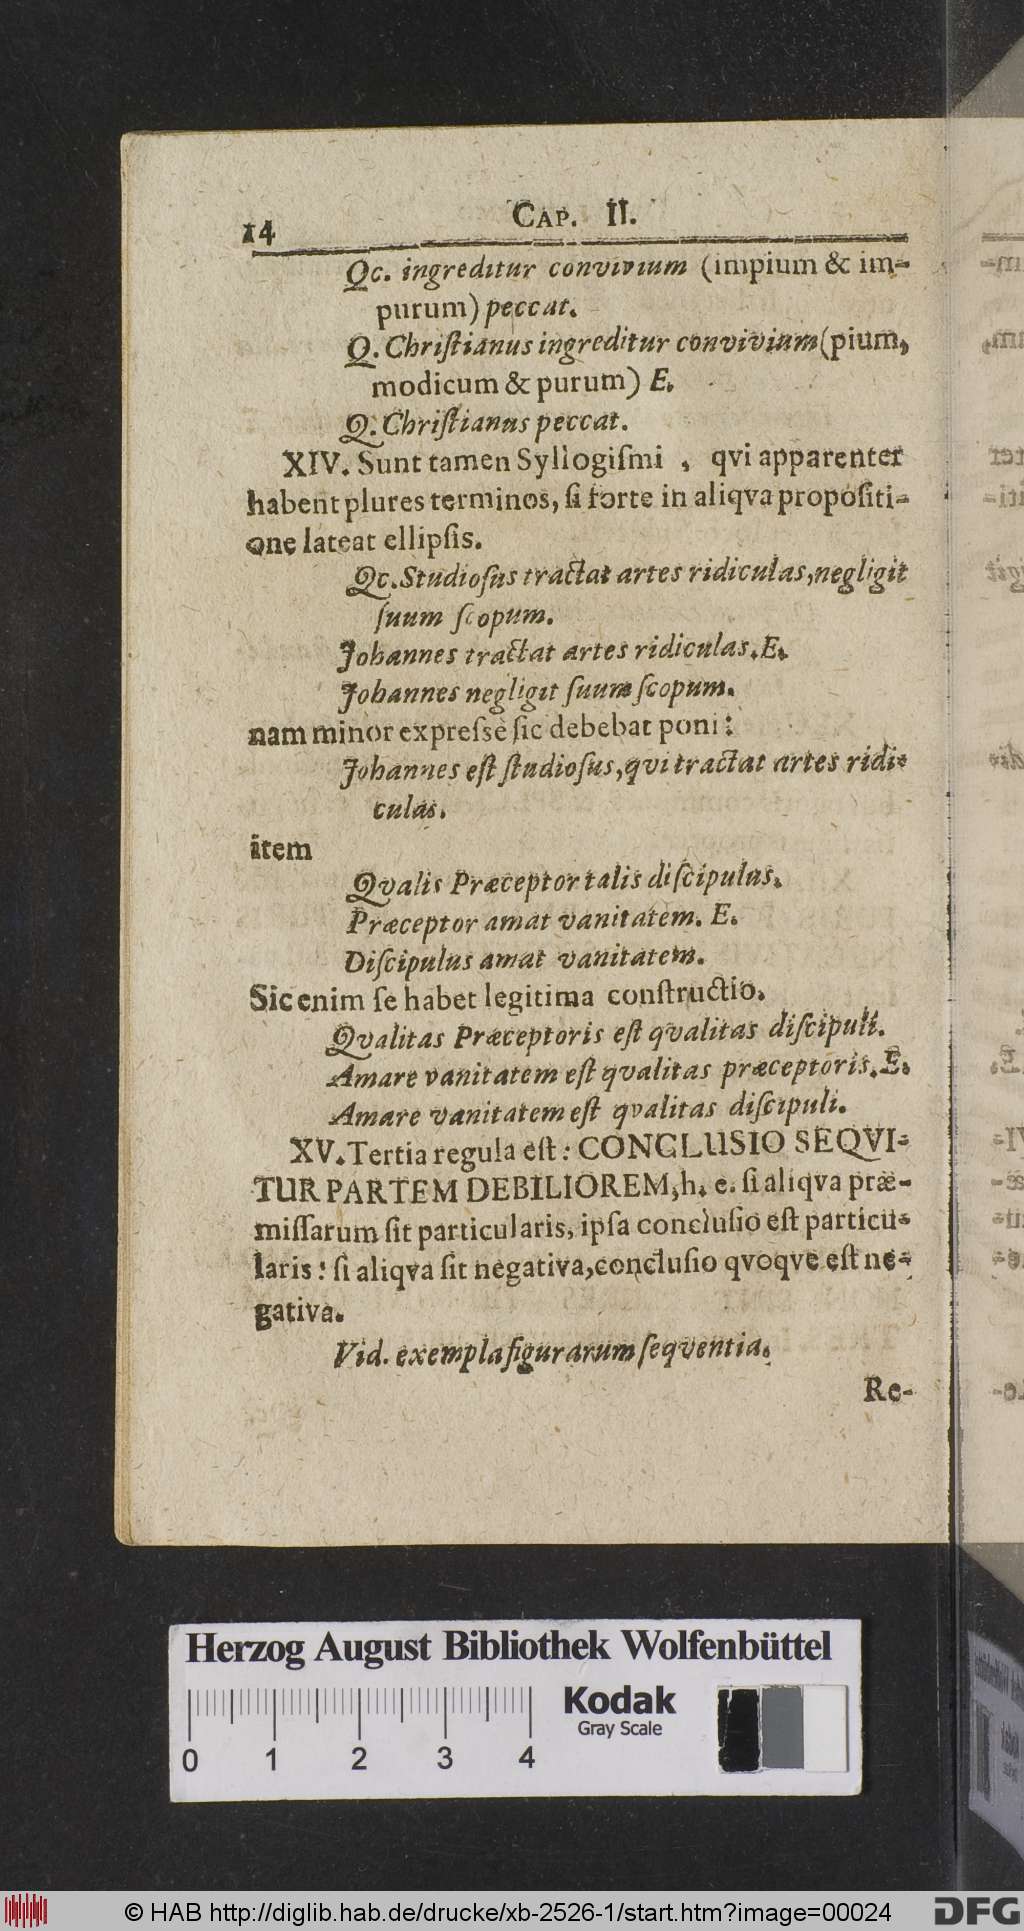 14
CAP. II.
Qc. ingreditur convivium (impium & im-
purum) peccat.
Q. Chriſtianus ingreditur convivium (pium,
modicum & purum) E.
Q. Chriſtianus peccat.
XIV. Sunt tamen Syllogiſmi , qvi apparenter
habent plures terminos, ſi forte in aliqva propoſiti-
one lateat ellipſis.
Qc. Studioſus tractat artes ridiculas, negligit
ſuum ſcopum.
Johannes tractat artes ridiculas. E.
Johannes negligit ſuum ſcopum.
nam minor expreſsè ſic debebat poni:
Johannes eſt ſtudioſus, qvi tractat artes ridi-
culas.
item
Qvalis Præceptor talis diſcipulus.
Præceptor amat vanitatem. E.
Diſcipulus amat vanitatem.
Sic enim ſe habet legitima conſtructio.
Qvalitas Præceptoris eſt qvalitas diſcipuli.
Amare vanitatem eſt qvalitas præceptoris. E.
Amare vanitatem eſt qvalitas diſcipuli.
XV. Tertia regula eſt: CONCLUSIO SEQVI-
TUR PARTEM DEBILIOREM, h. e. ſi aliqva præ-
miſſarum ſit particularis, ipſa concluſio eſt particu-
laris: ſi aliqva ſit negativa, concluſio qvoqve eſt ne-
gativa.
Vid. exempla figurarum ſeqventia.
Re-
Herzog August Bibliothek Wolfenbüttel
Kodak
Gray Scale
0 1 2 3 4
© HAB http://diglib.hab.de/drucke/xb-2526-1/start.htm?image=00024
DFG